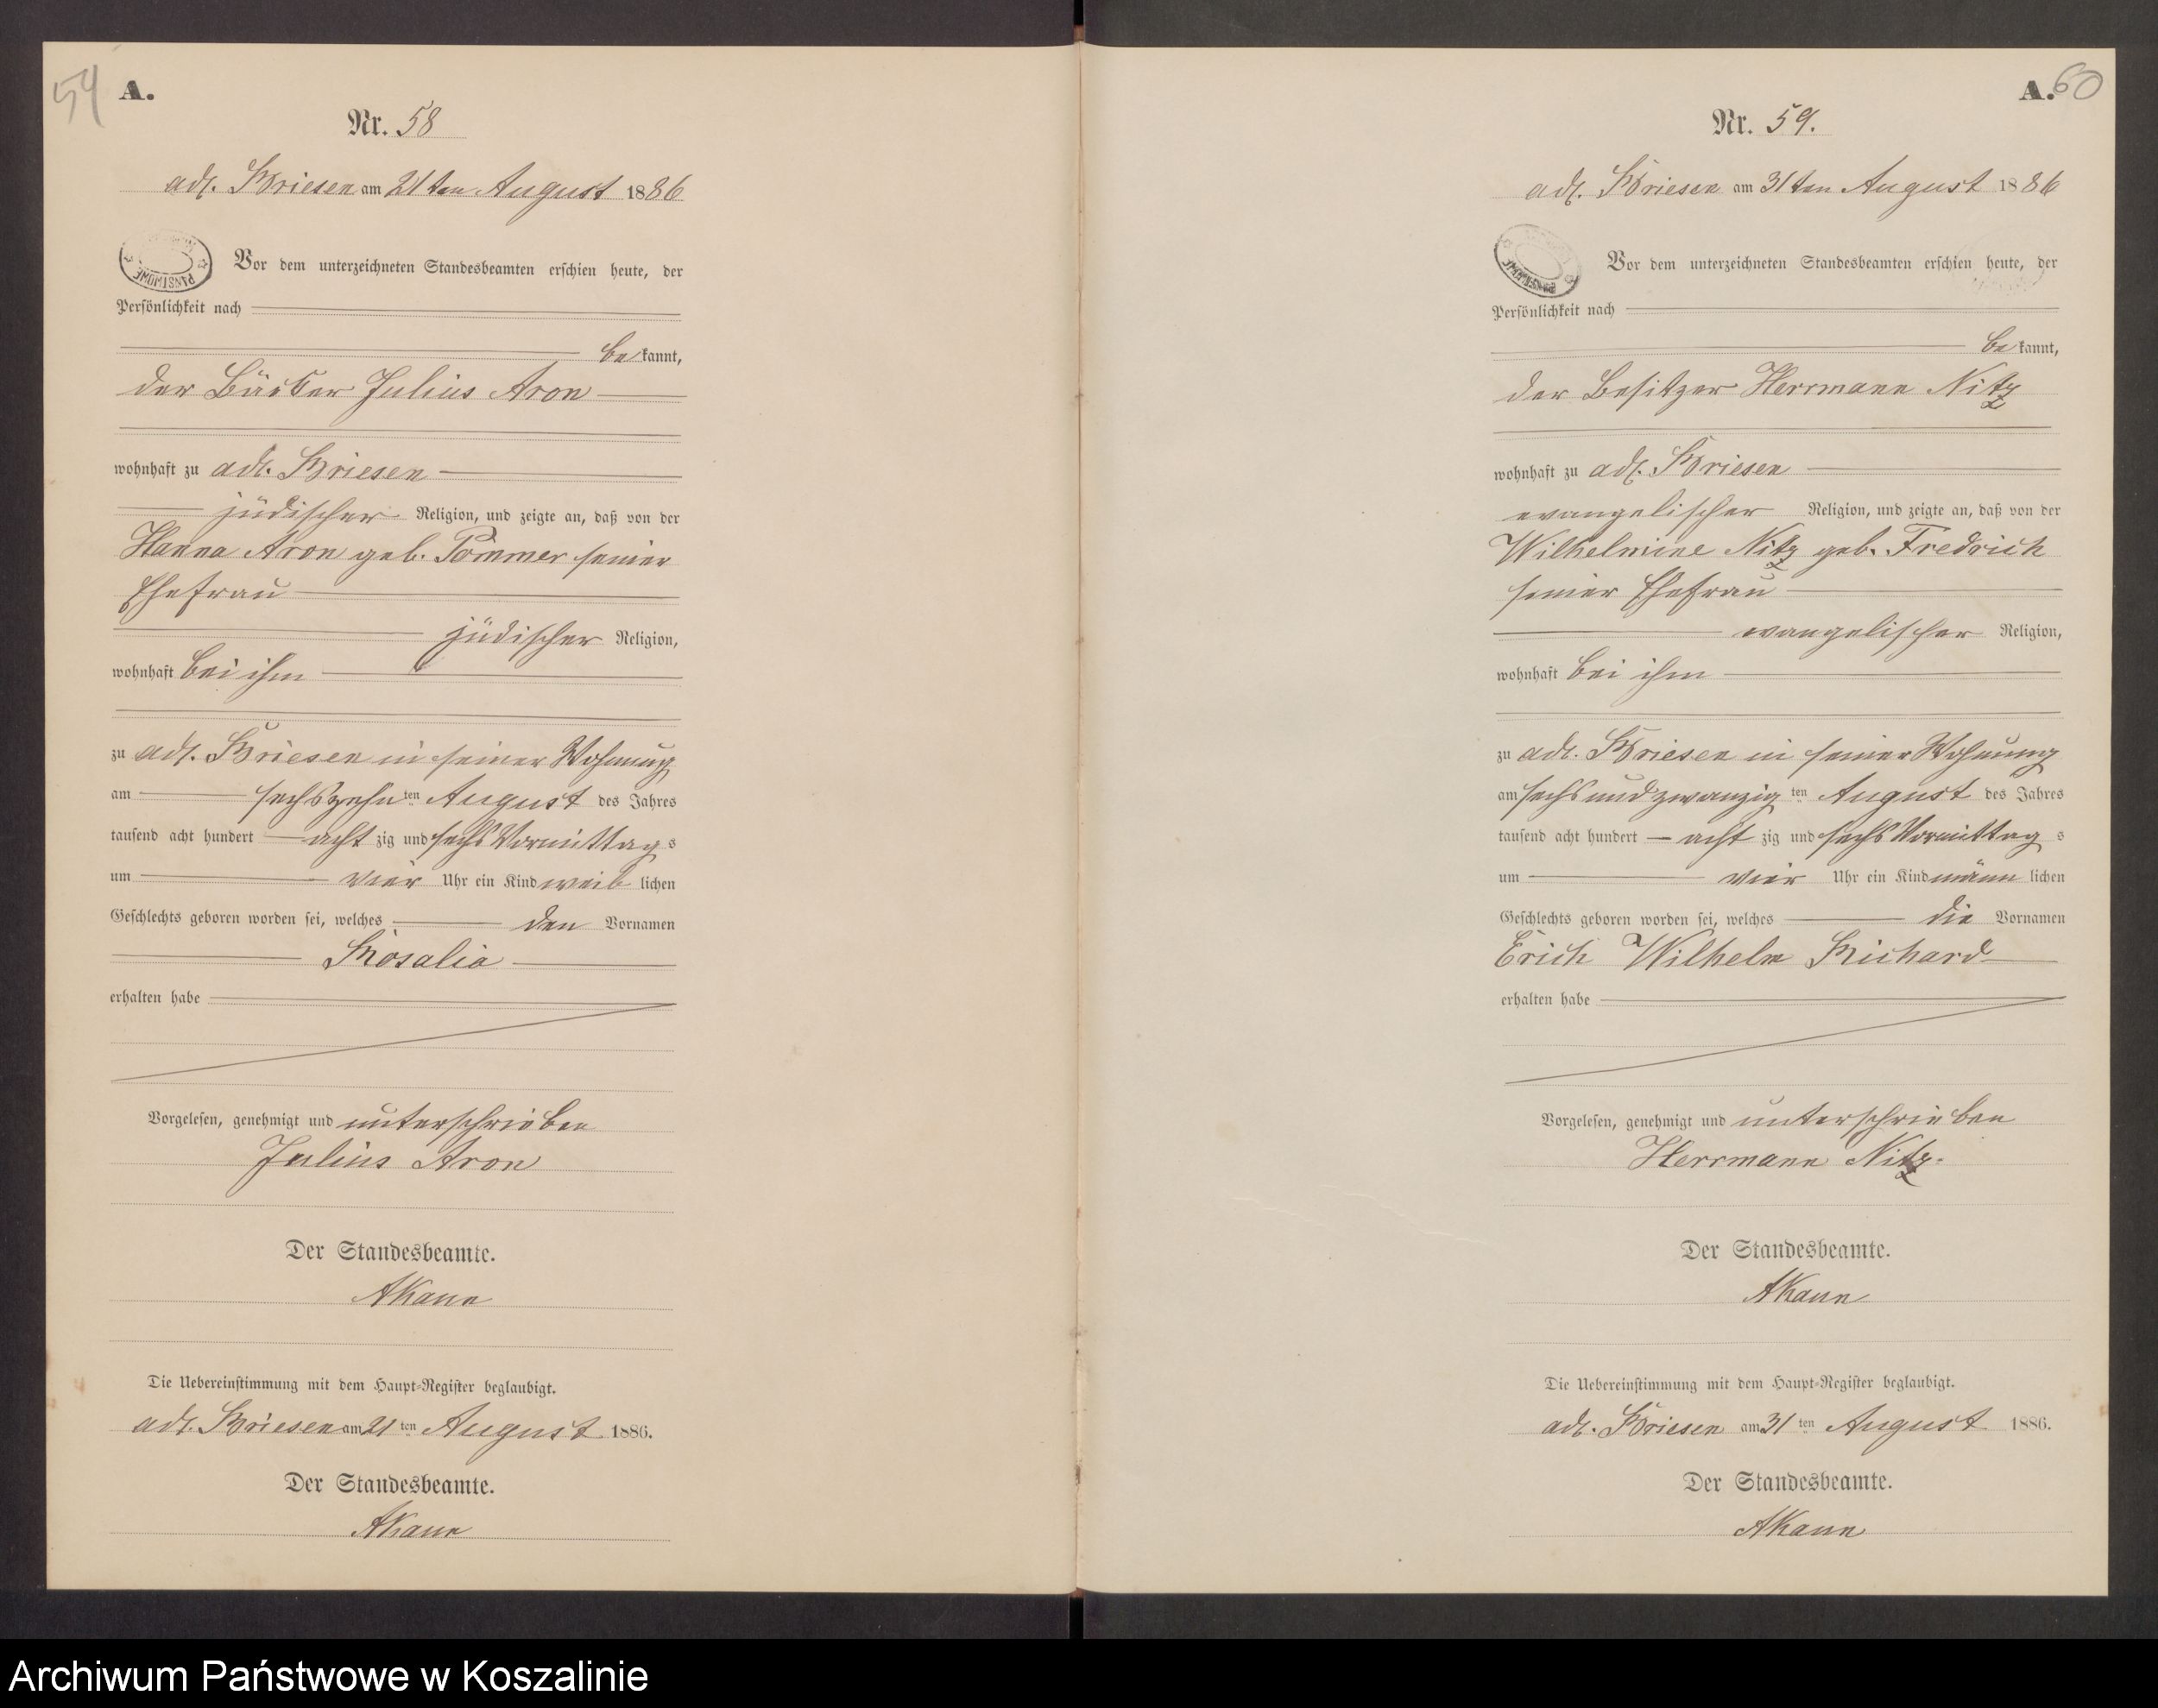 54
A.
Nr. 58
adl. Briesen am 21ten August 1886
PAŃSTWOWE
Vor dem unterzeichneten Standesbeamten erschien heute, der
Persönlichkeit nach
bekannt,
der Bäcker Julius Aron
wohnhaft zu adl. Briesen
jüdischer Religion, und zeigte an, daß von der
Hanna Aron geb. Pommer seiner
Ehefrau
jüdischer Religion,
wohnhaft bei ihm
zu adl. Briesen in seiner Wohnung
am sechszehnten August des Jahres
tausend acht hundert achtzig und sechs Vormittags
um vier Uhr ein Kind weiblichen
Geschlechts geboren worden sei, welches den Vornamen
Rosalia
erhalten habe
Vorgelesen, genehmigt und unterschrieben
Julius Aron
Der Standesbeamte.
AKann
Die Uebereinstimmung mit dem Haupt-Register beglaubigt.
adl. Briesen am 21ten August 1886.
Der Standesbeamte.
AKann
A. 60
Nr. 59.
adl. Briesen am 31ten August 1886
Vor dem unterzeichneten Standesbeamten erschien heute, der
Persönlichkeit nach
bekannt,
der Besitzer Herrmann Nitz
wohnhaft zu adl. Briesen
evangelischer Religion, und zeigte an, daß von der
Wilhelmine Nitz geb. Fredrich
seiner Ehefrau
evangelischer Religion,
wohnhaft bei ihm
zu adl. Briesen in seiner Wohnung
am sechsundzwanzigten August des Jahres
tausend acht hundert achtzig und sechs Vormittags
um vier Uhr ein Kind männlichen
Geschlechts geboren worden sei, welches die Vornamen
Erich Wilhelm Richard
erhalten habe
Vorgelesen, genehmigt und unterschrieben
Herrmann Nitz.
Der Standesbeamte.
AKann
Die Uebereinstimmung mit dem Haupt-Register beglaubigt.
adl. Briesen am 31ten August 1886.
Der Standesbeamte.
AKann
Archiwum Państwowe w Koszalinie